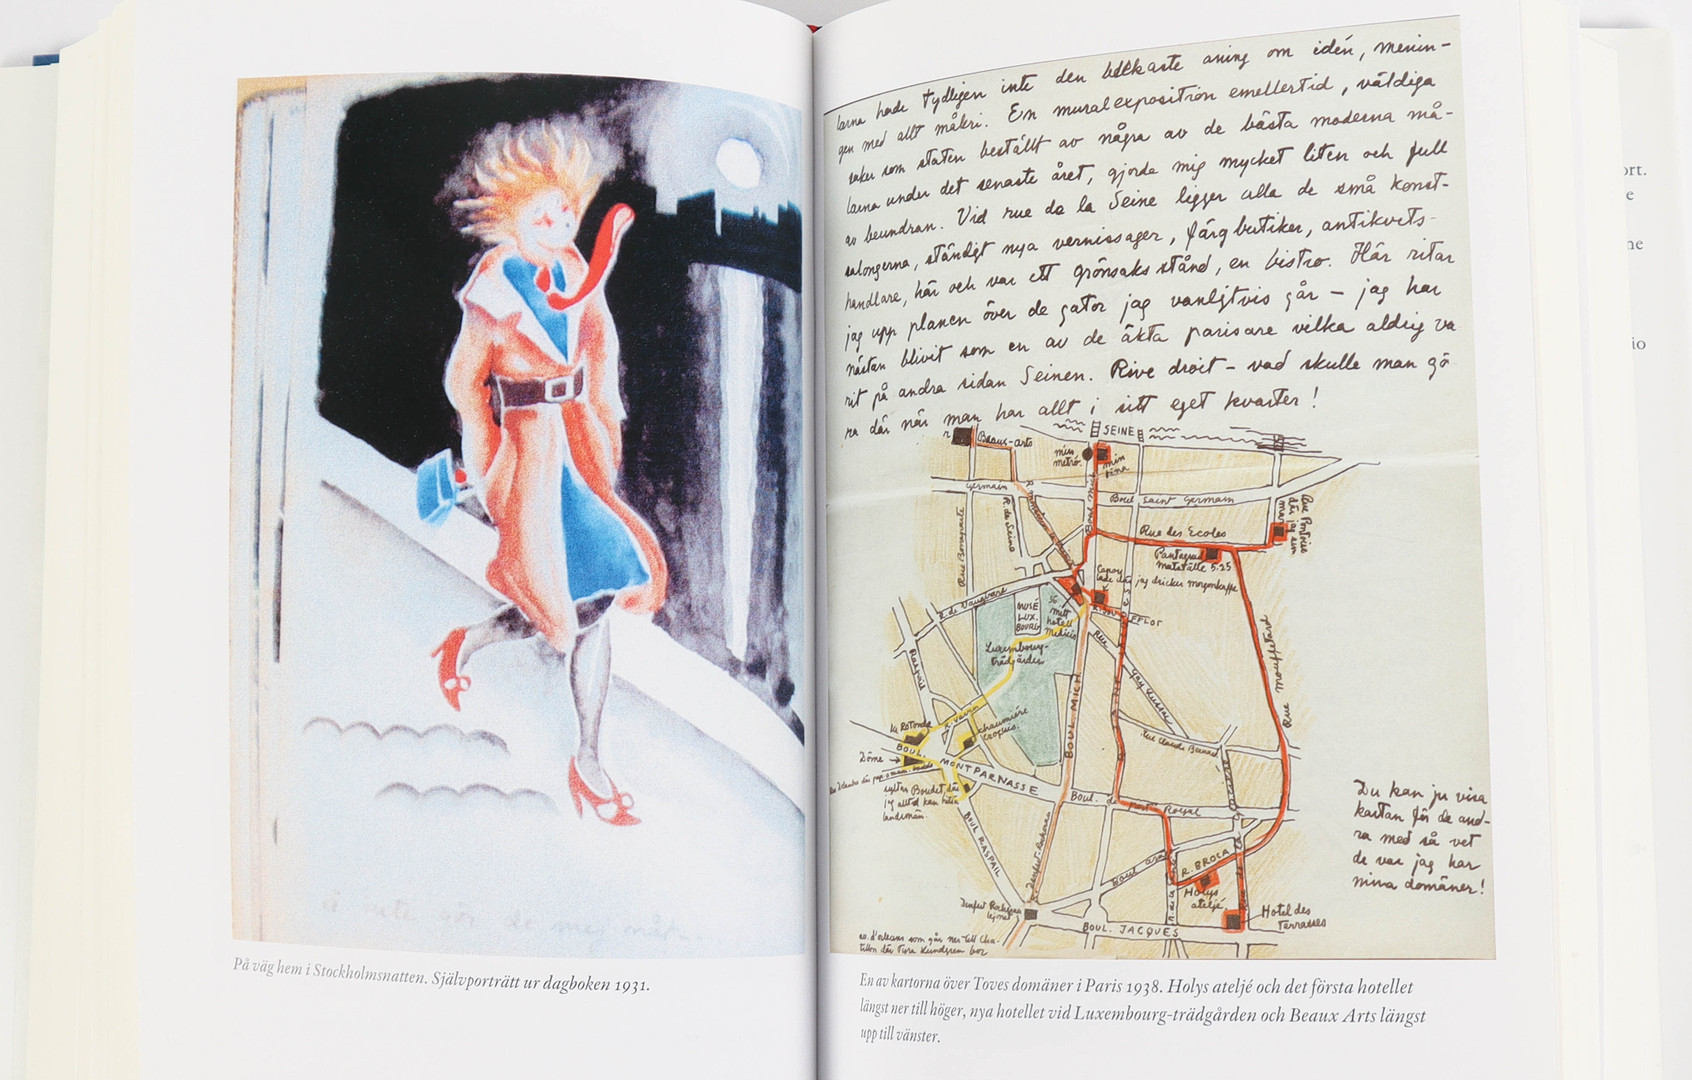 i inte för de mig nåt
På väg hem i Stockholmsnatten. Självporträtt ur dagboken 1931.
larna hade tydligen inte den blekaste aning om idén, menin-
gen med allt måleri. En muralexposition emellertid, väldiga
saker som staten beställt av några av de bästa moderna må-
larna under det senaste året, gjorde mig mycket liten och full
av beundran. Vid rue de la Seine ligger alla de små konst-
salongerna, ständigt nya vernissager, färgbutiker, antikvitets-
handlare, här och var ett grönsaksstånd, en bistro. Här ritar
jag upp planen över de gator jag vanligtvis går – jag har
nästan blivit som en av de äkta parisare vilka aldrig va
rit på andra sidan Seinen. Rive droit – vad skulle man gö
ra där när man har allt i sitt eget kvarter!
SEINE
Beaux-arts
min
metro.
min
Germain
Boul. Saint Germain
R. de Seine
Rue Bonaparte
Boul. Mich
Rue des Ecoles
Pantagruel
matställe 5.25
där jag dricker morgonkaffe
R. de Vaugirard
MUSÉ
LUX.
BOURG
mitt
hotell
Medicis
Luxembourg-
trädgården
Rue
Gay Lussac
Rue Mouffetard
Raspail
R. Vavin
La Rotonde
Chaumière
Croquis.
BOUL. MICH.
Rue Claude Bernard
Dôme →
BOUL. MONTPARNASSE
Boul. de port Royal
BOUL RASPAIL
Denfert-Rochereau
Boul arago
R. BROCA
Holys
ateljé.
Hotel des
Terrasses
BOUL. JACQUES
av. d'orleans som går ner till Cha-
tillon där Tyra Lundgren bor
Du kan ju visa
kartan för de and-
ra med så vet
de var jag har
mina domäner!
En av kartorna över Toves domäner i Paris 1938. Holys ateljé och det första hotellet
längst ner till höger, nya hotellet vid Luxembourg-trädgården och Beaux Arts längst
upp till vänster.
ort.
e
ne
io